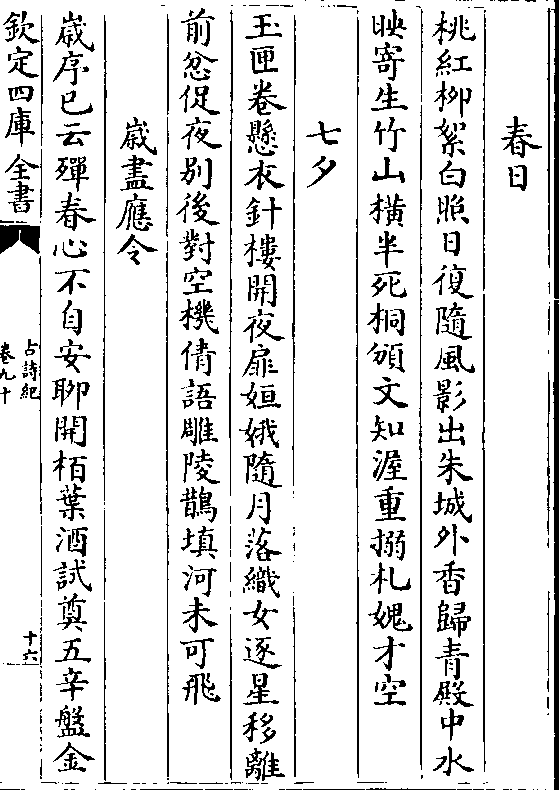 春日
桃紅栁絮白照日復隨風影出朱城外香歸青殿中水
映寄生竹山橫半死桐頒文知渥重搦札媿才空
七夕
玉匣卷懸衣針樓開夜扉姮娥隨月落織女逐星移離
前忿促夜别後對空機倩語雕陵鵲填河未可飛
歳盡應令
歳序已云殫春心不自安聊開栢葉酒試奠五辛盤金
欽定四庫全書
古詩紀
卷九十
十六